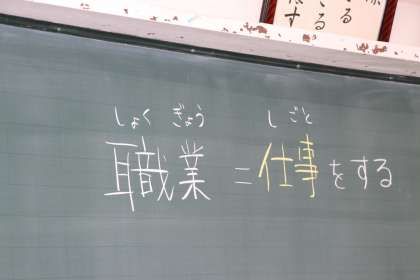 しょくぎょう しごと
職業=仕事をする